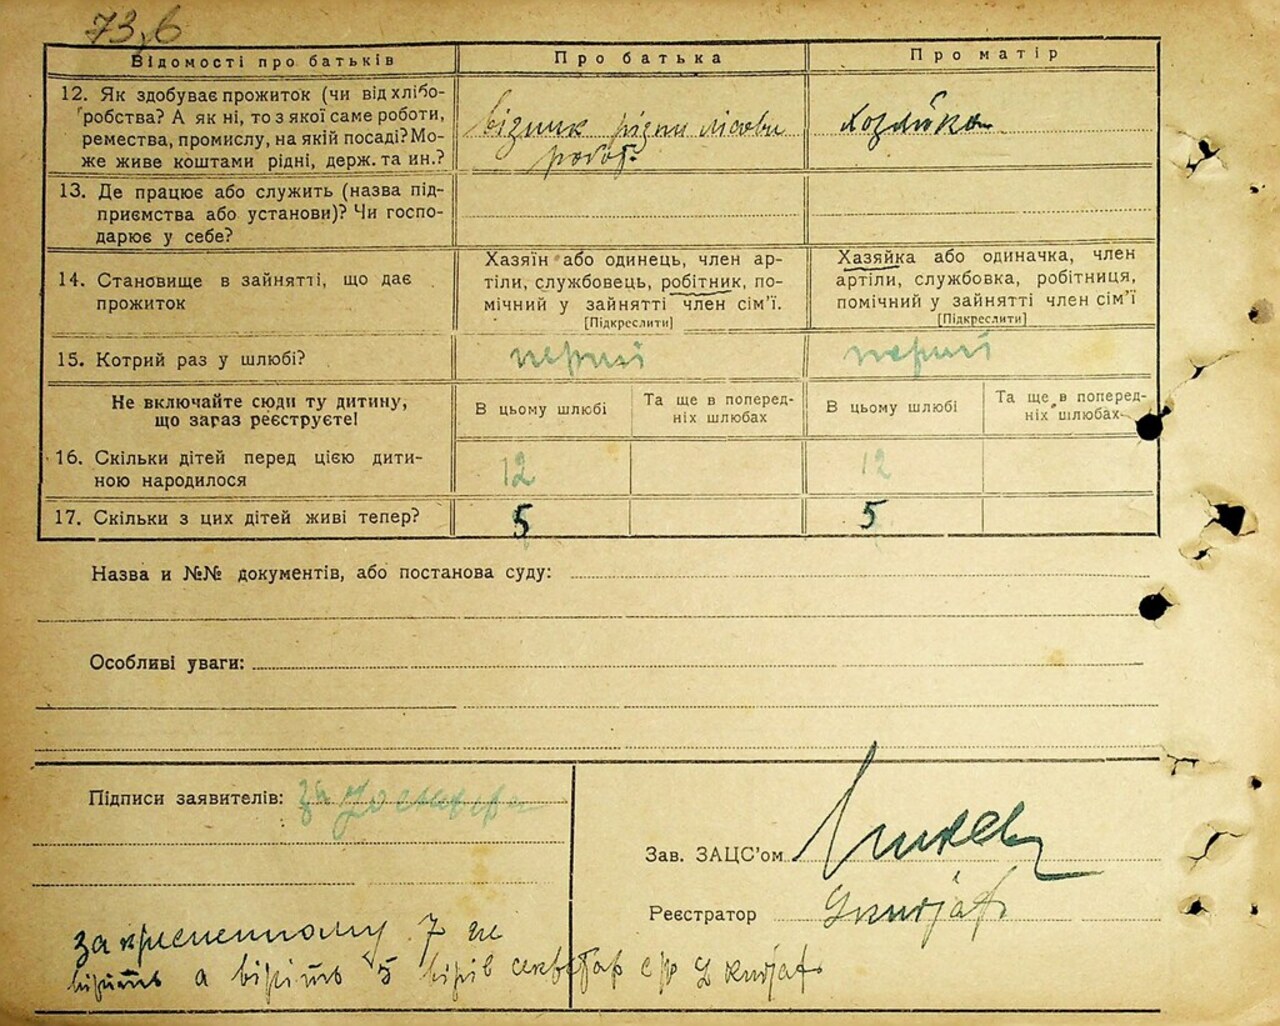 73,6
Відомості про батьків
Про батька
Про матір
12. Як здобуває прожиток (чи від хлібо-
робства? А як ні, то з якої саме роботи,
ремества, промислу, на якій посаді? Мо-
же живе коштами рідні, держ. та ин.?
візник
робот.
хозяйка
13. Де працює або служить (назва під-
приємства або установи)? Чи госпо-
дарює у себе?
14. Становище в зайнятті, що дає
прожиток
Хазяїн або одинець, член ар-
тіли, службовець, робітник, по-
мічний у зайнятті член сім’ї.
[Підкреслити]
Хазяйка або одиначка, член
артіли, службовка, робітниця,
помічний у зайнятті член сім’ї
[Підкреслити]
15. Котрий раз у шлюбі?
перший
перший
Не включайте сюди ту дитину,
що зараз реєструєте!
В цьому шлюбі
Та ще в поперед-
ніх шлюбах
В цьому шлюбі
Та ще в поперед-
ніх шлюбах
16. Скільки дітей перед цією дити-
ною народилося
12
12
17. Скільки з цих дітей живі тепер?
5
5
Назва и №№ документів, або постанова суду:
Особливі уваги:
Підписи заявителів: за
Зав. ЗАЦС’ом
Реєстратор
закресленному 7 не
вірить а вірить 5 вірів секретар с/р